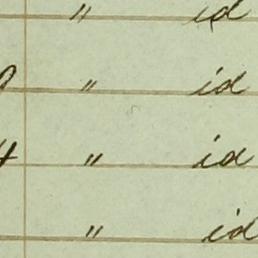 " id
" id
4 " id
" id